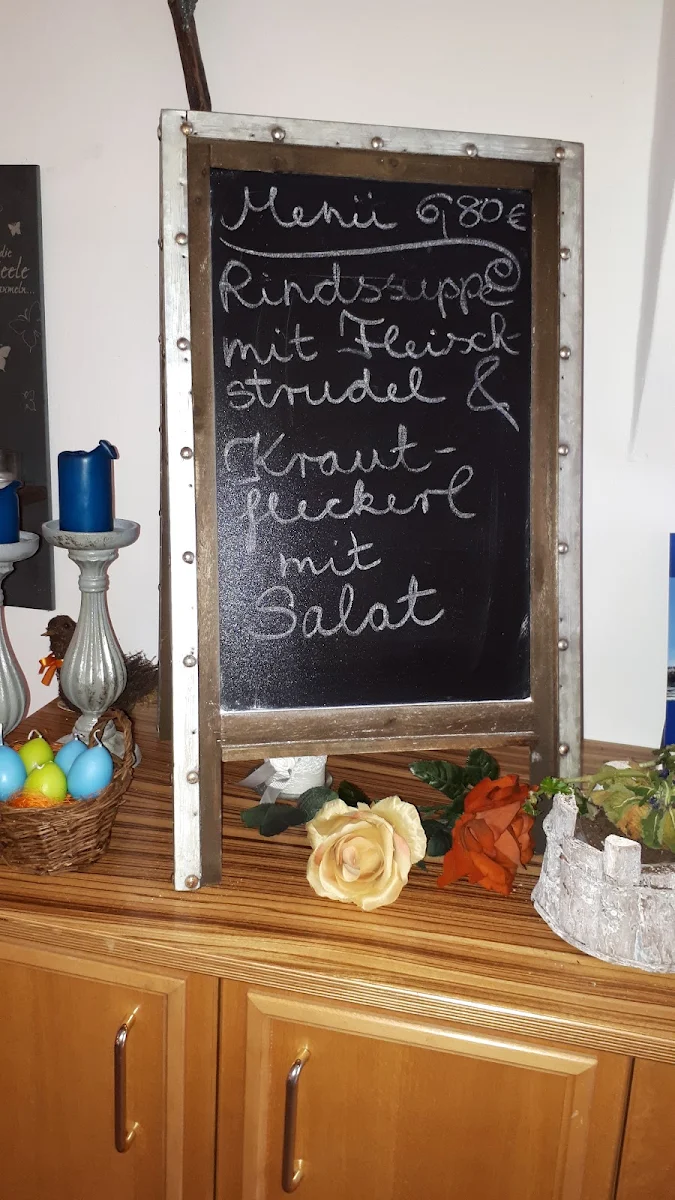 Menü 6,80€
Rindssuppe
mit Fleisch-
strudel &
Kraut-
fleckerl
mit
Salat
die
eele